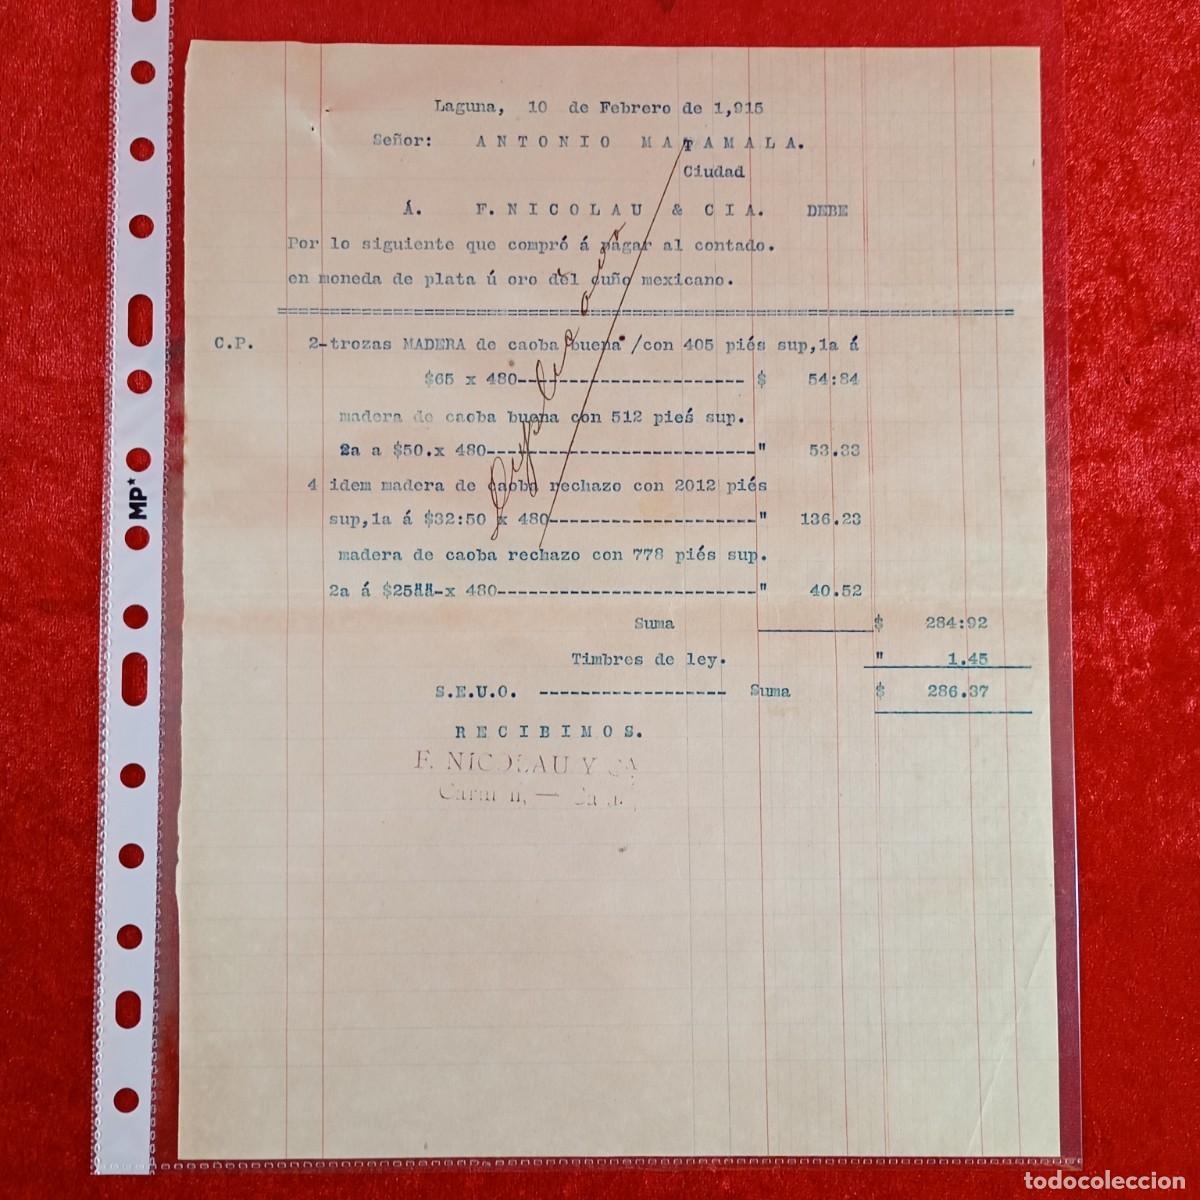 Laguna, 10 de Febrero de 1,915
Señor: ANTONIO MATAMALA.
Ciudad
Á. F. NICOLAU & CIA. DEBE
Por lo siguiente que compró á pagar al contado.
en moneda de plata ú oro del cuño mexicano.
C.P. 2-trozas MADERA de caoba buena /con 405 piés sup,1a á
$65 x 480---------------------- $ 54:84
madera de caoba buena con 512 pieś sup.
2a a $50.x 480--------------------------" 53.33
4 idem madera de caoba rechazo con 2012 piés
sup,1a á $32:50 x 480--------------------" 136.23
madera de caoba rechazo con 778 piés sup.
2a á $25 -x 480-------------------------" 40.52
Suma $ 284:92
Timbres de ley. " 1.45
S.E.U.O. ------------------ Suma $ 286.37
RECIBIMOS.
F. NICOLAU Y
MP
todocoleccion